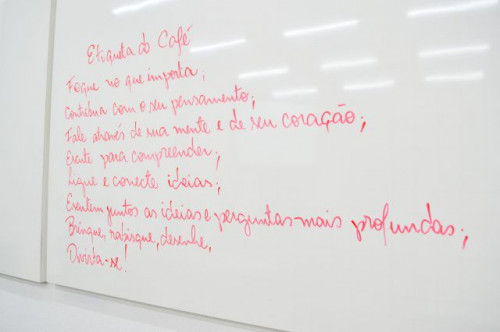 Etiqueta do Café
Foque no que importa;
Contribua com o seu pensamento;
Fale através de sua mente e de seu coração;
Escute para compreender;
Ligue e conecte ideias;
Escutem juntos as ideias e perguntas mais profundas;
Brinque, rabisque, desenhe,
Divirta-se!